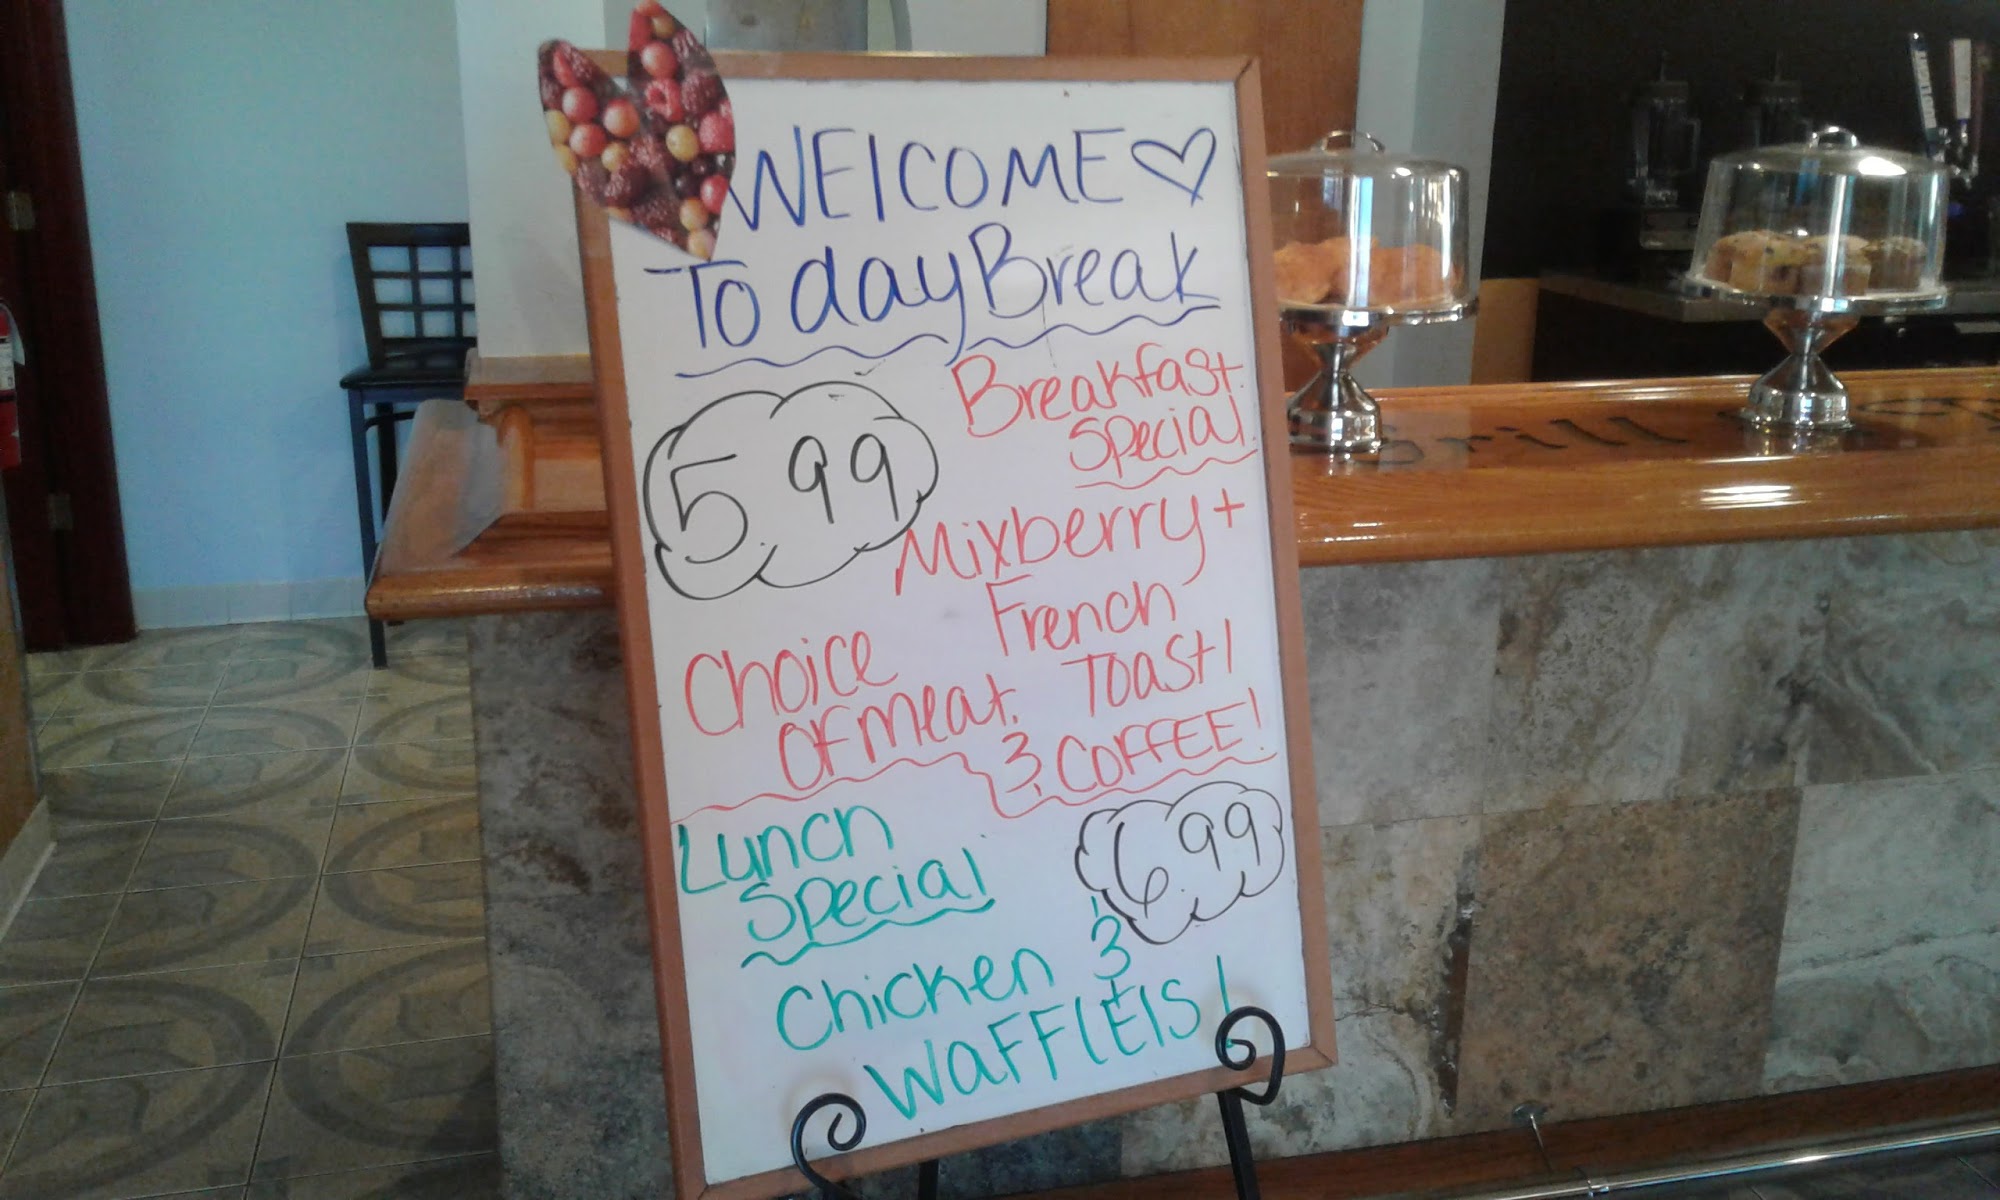 WElCOME
To dayBreak
5.99
Breakfast
Special
Mixberry +
French
Toast!
& COFFEE!
Choice
OF meat.
Lunch
Special
6.99
Chicken &
WAFFlEIS!
Grill